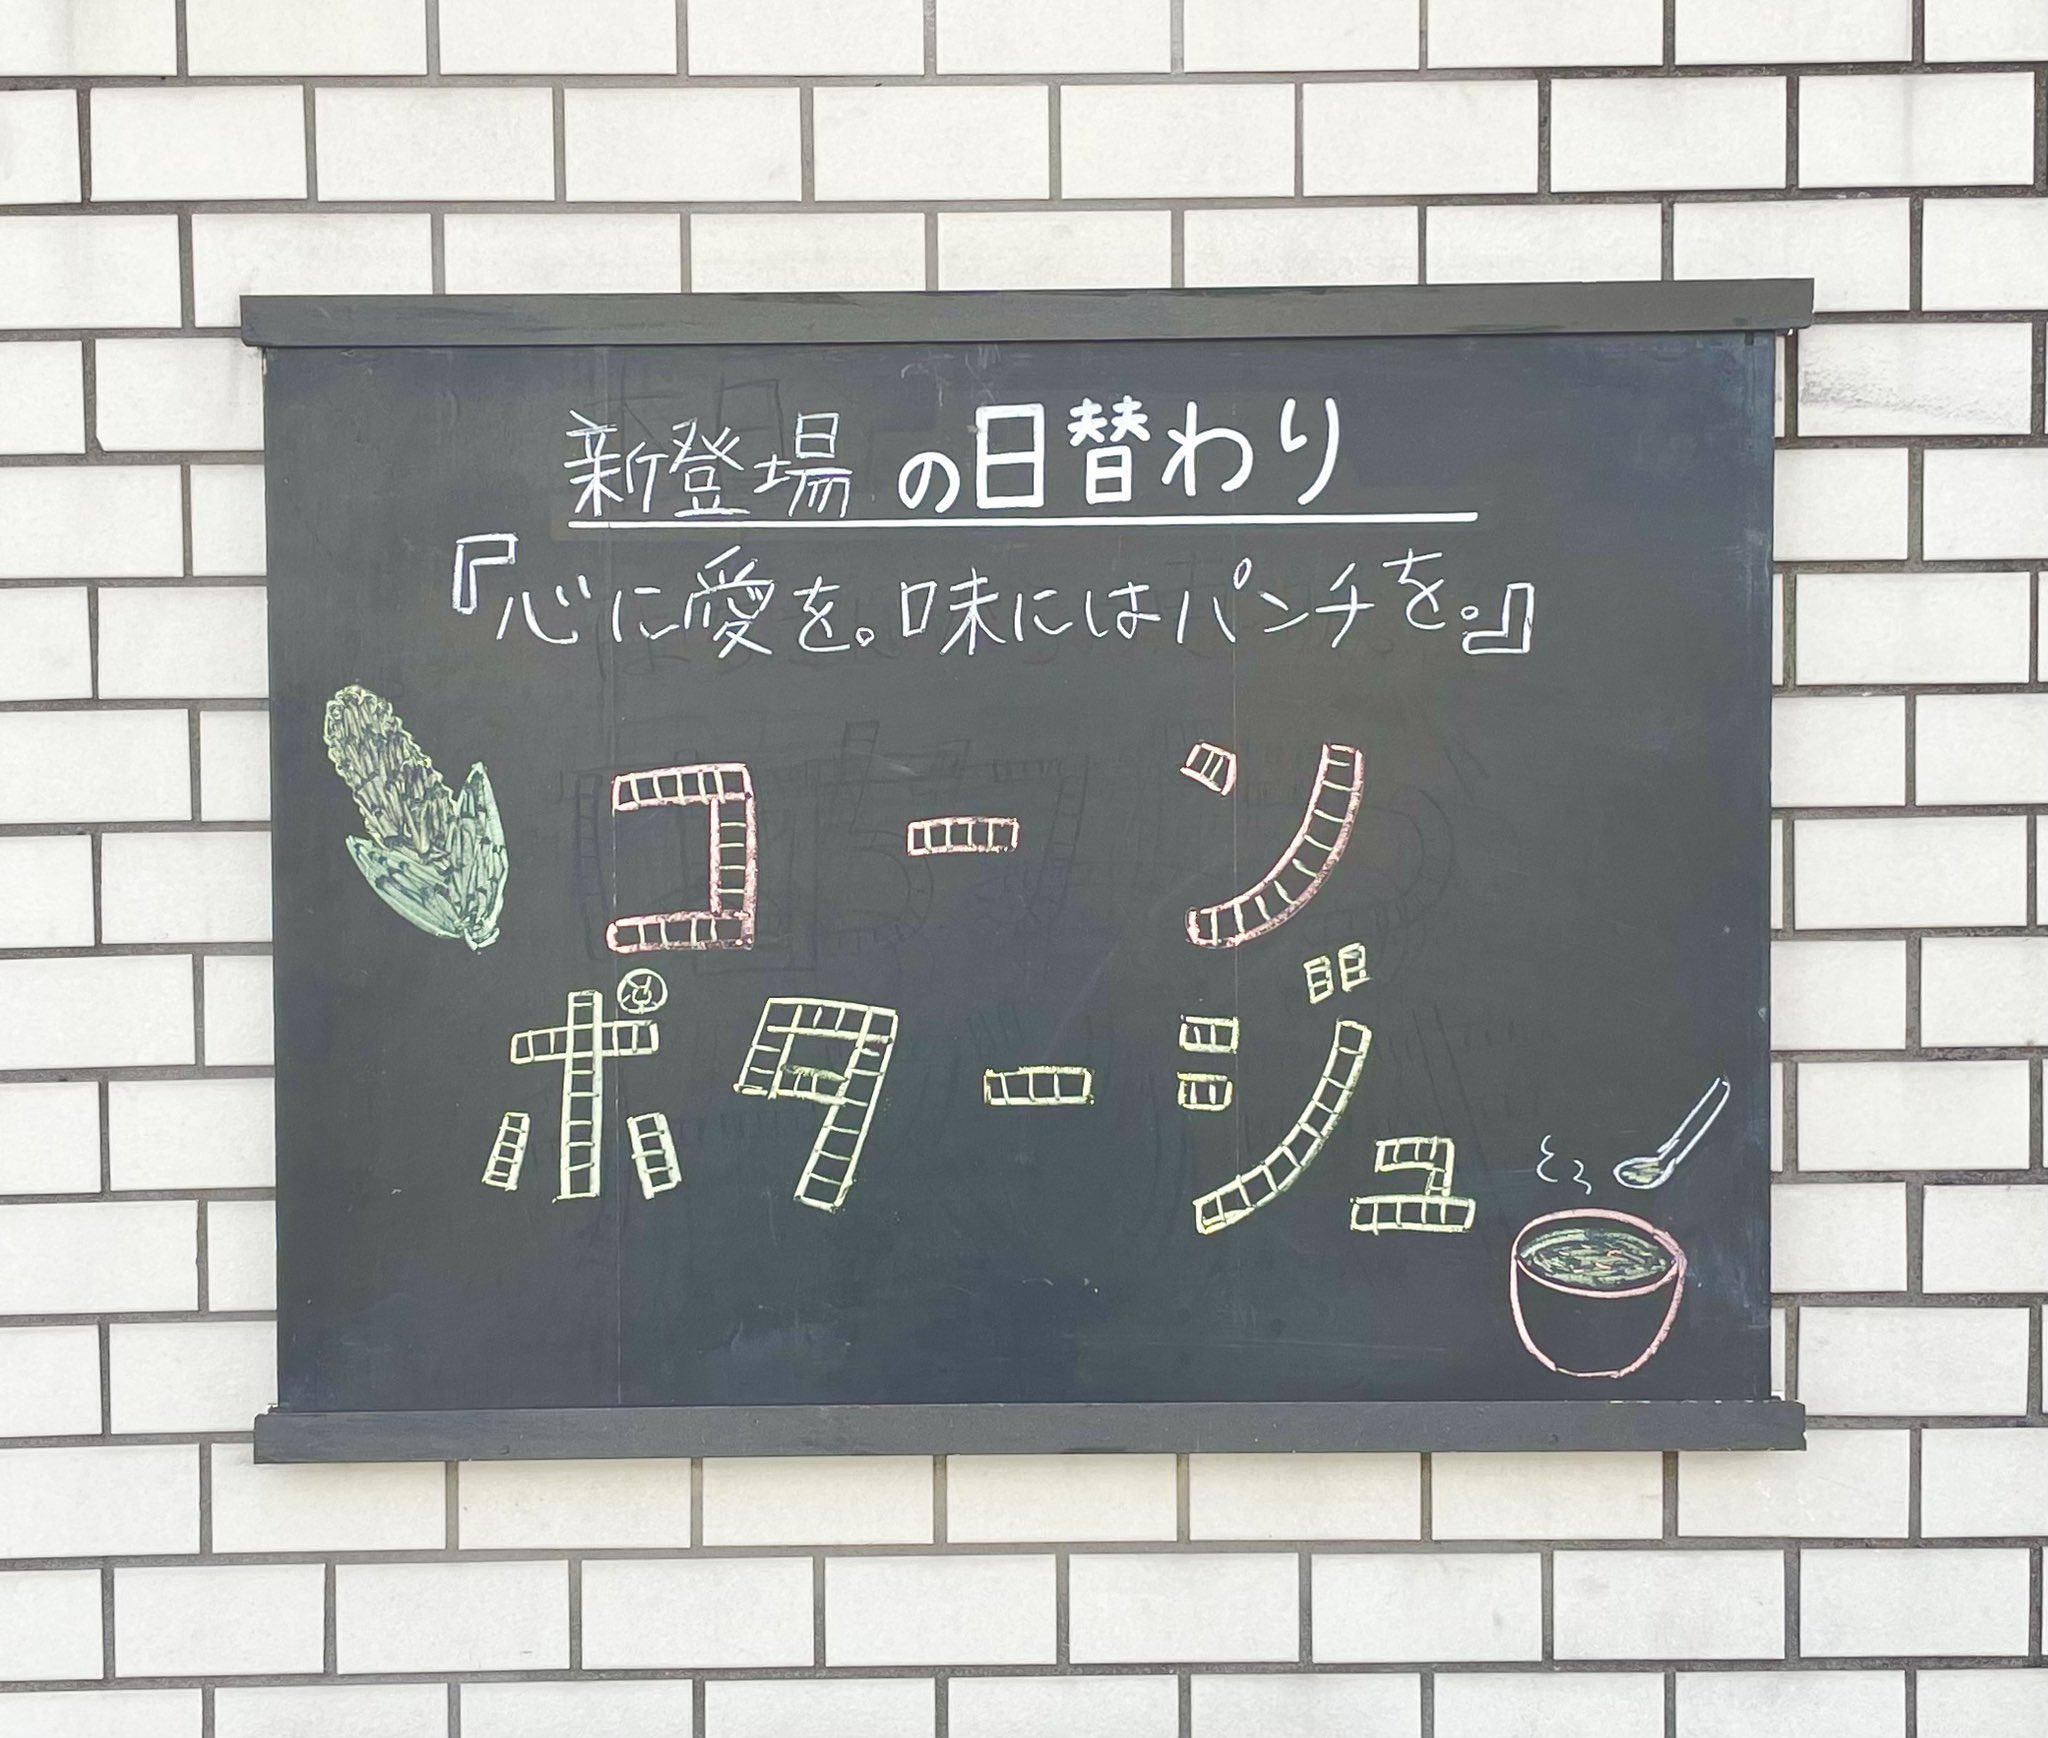 新登場の日替わり
『心に愛を。味にはパンチを。』
コーン
ポタージュ